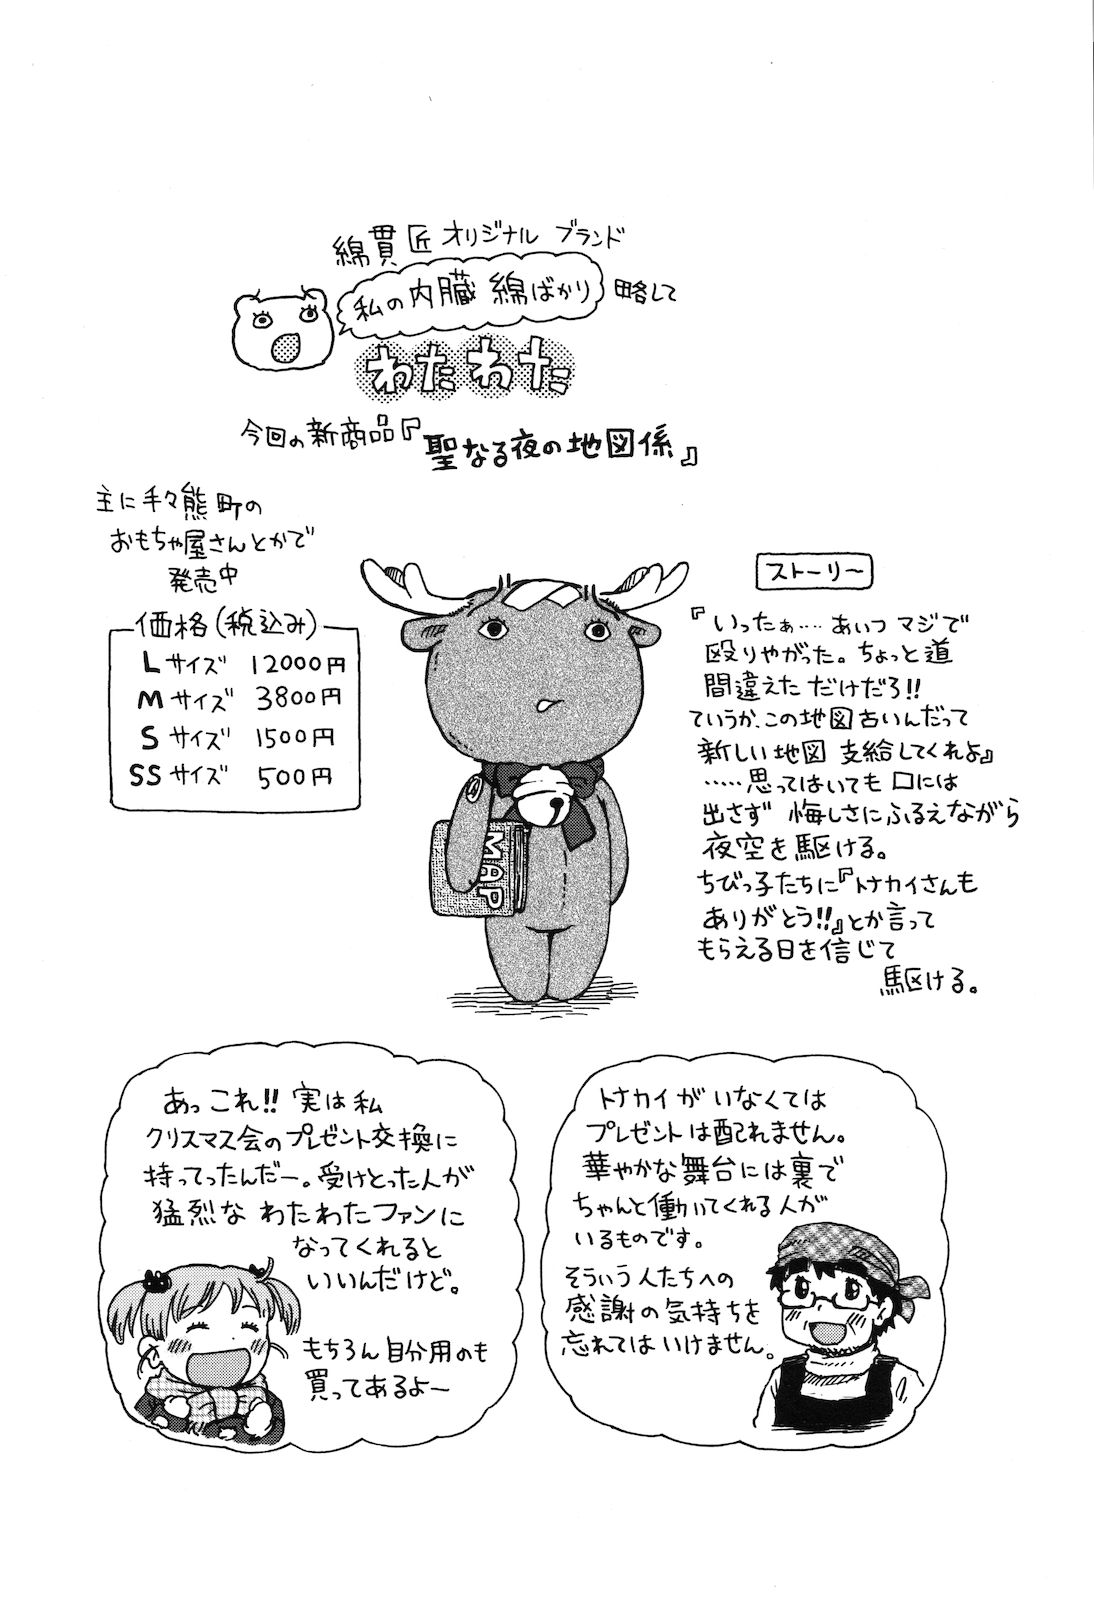 綿貫匠オリジナルブランド
私の内臓綿ばかり 略して
わたわた
今回の新商品『聖なる夜の地図係』
主に手々熊町の
おもちゃ屋さんとかで
発売中
価格(税込み)
Lサイズ 12000円
Mサイズ 3800円
Sサイズ 1500円
SSサイズ 500円
MAP
ストーリー
『いったぁ‥‥あいつマジで
殴りやがった。ちょっと道
間違えただけだろ!!
ていうか、この地図古いんだって
新しい地図 支給してくれよ』
‥‥‥思ってはいても口には
出さず 悔しさにふるえながら
夜空を駆ける。
ちびっ子たちに『トナカイさんも
ありがとう!!』とか言って
もらえる日を信じて
駆ける。
あっこれ!! 実は私
クリスマス会のプレゼント交換に
持ってったんだー。受けとった人が
猛烈なわたわたファンに
なってくれると
いいんだけど。
もちろん自分用のも
買ってあるよー
トナカイがいなくては
プレゼントは配れません。
華やかな舞台には裏で
ちゃんと働いてくれる人が
いるものです。
そういう人たちへの
感謝の気持ちを
忘れてはいけません。